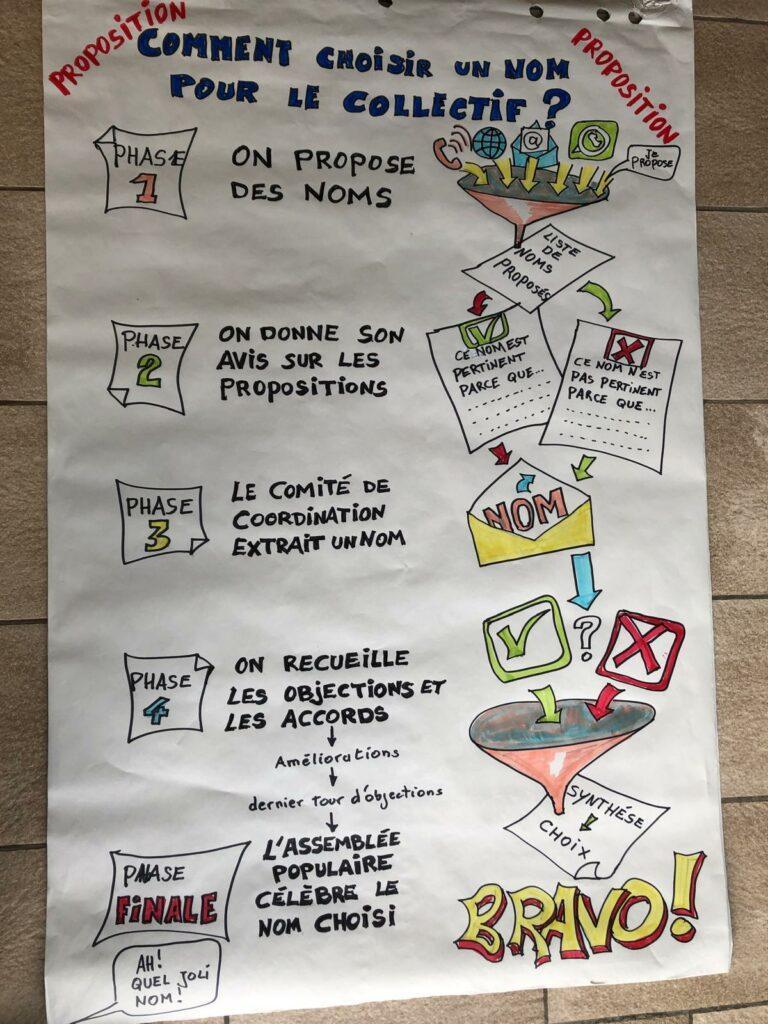 PROPOSITION
COMMENT CHOISIR UN NOM
POUR LE COLLECTIF ?
PROPOSITION
PHASE
1
ON PROPOSE
DES NOMS
@
JE
PROPOSE
LISTE
DE
NOMS
PROPOSÉS
PHASE
2
ON DONNE SON
AVIS SUR LES
PROPOSITIONS
CE NOM EST
PERTINENT
PARCE QUE...
CE NOM N'EST
PAS PERTINENT
PARCE QUE...
PHASE
3
LE COMITÉ DE
COORDINATION
EXTRAIT UN NOM
NOM
?
PHASE
4
ON RECUEILLE
LES OBJECTIONS ET
LES ACCORDS
Améliorations
dernier tour d'objections
SYNTHÉSE
CHOIX
PHASE
FINALE
L'ASSEMBLÉE
POPULAIRE
CÉLÈBRE LE
NOM CHOISI
BRAVO!
AH!
QUEL JOLI
NOM!